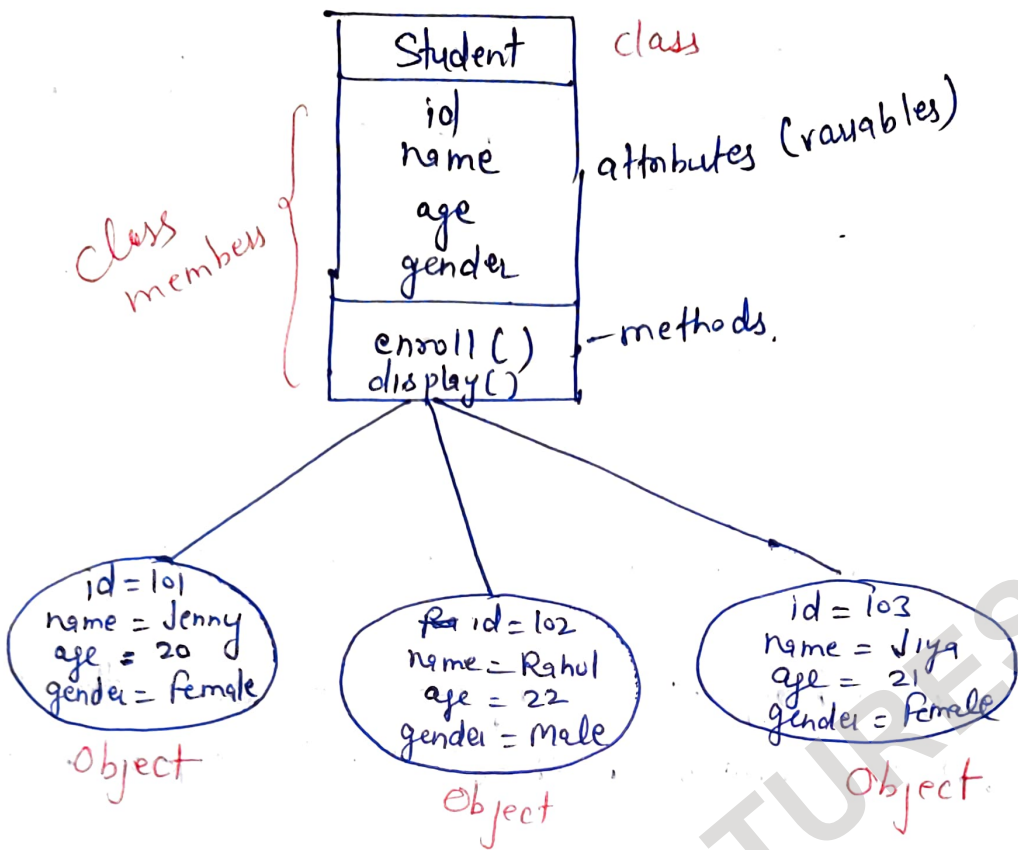 Student
class
id
name
age
gender
attributes (variables)
class
members
enroll()
display()
methods.
id = 101
name = Jenny
age = 20
gender = female
Object
id = 102
name = Rahul
age = 22
gender = Male
Object
id = 103
name = Jiya
age = 21
gender = Female
Object
TURES